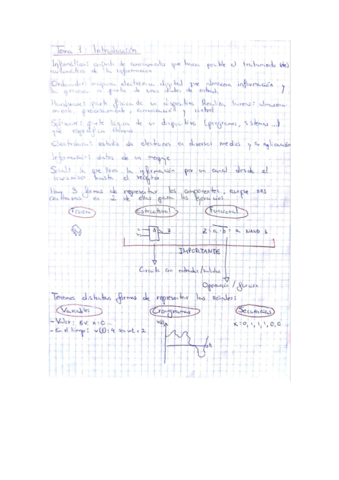 Tema 1: Introducción
Informática: conjunto de conocimientos que hacen posible el tratamiento
automático de la información
Ordenador: máquina electrónica digital que almacena información y
la procesa a partir de unos datos de entrada
Hardware: parte física de un dispositivo. Realiza tareas:
procesamiento, comunicación y control
Software: parte lógica de un dispositivo (programas, sistemas...)
que
Electrónica: estudio de electrones en diversos medios y su aplicación
Información: datos de un mensaje
Señal: la que lleva la información por un canal desde el
transmisor hasta el receptor
Hay 3 formas de representar los componentes, aunque nos
centramos en 2 de ellas para los
Física Estructural Funcional
IMPORTANTE
Circuito con entradas/salidas
Operación / función
Tenemos distintas formas de representar las señales:
Variables Cronogramas Secuencias
- Valor: Ex x=0